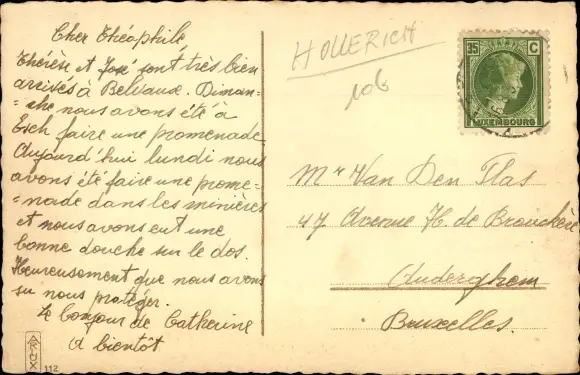 Cher Théophile,
Thérèse et José sont très bien
arrivés à Belvaux. Diman-
-che nous avons été à
Esch faire une promenade
Aujourd'hui lundi nous
avons été faire une prome-
-nade dans les minières
et nous avons eut une
bonne douche sur le dos.
Heureusement que nous avons
su nous protéger.
Le bonjour de Catherine
A bientôt
ARLUX
112
HOLLERICH
106
35 C
LUXEMBOURG
Mr Van Den Plas
47 Avenue H. de Brouckère
Auderghem
Bruxelles.